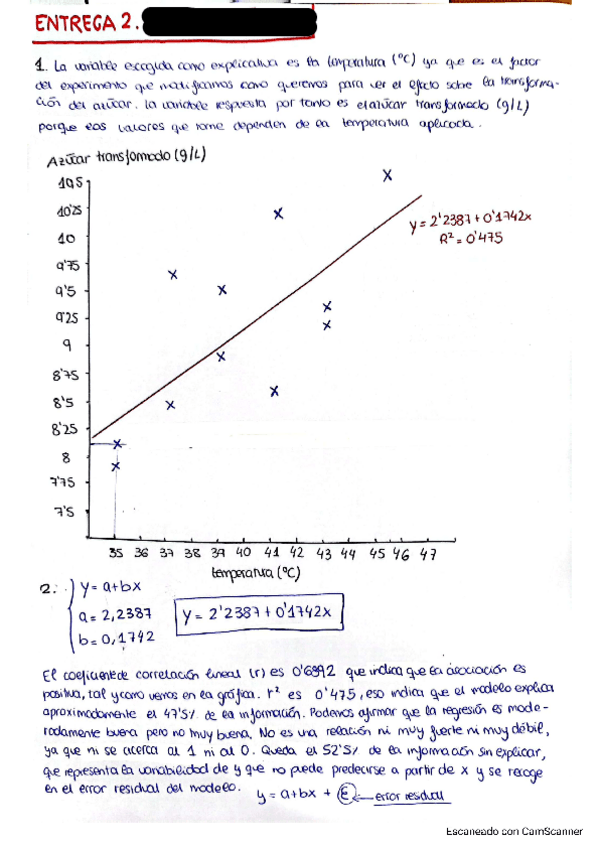 ENTREGA 2.
1. La variable escogida como explicativa es la temperatura (ºC) ya que es el factor
del experimento que modificamos como queremos para ver el efecto sobre la transforma-
ción del azúcar. La variable respuesta por tanto es el azúcar transformado (g/L)
porque los valores que tome dependen de la temperatura aplicada.
Azúcar transformado (g/L)
10,5
10'25
10
9'75
9'5
9'25
9
8'75
8'5
8'25
8
7'75
7'5
y = 2'2387 + 0'1742x
R² = 0'475
35 36 37 38 39 40 41 42 43 44 45 46 47
temperatura (ºC)
2. y = a+bx
a = 2,2387
b = 0,1742
y = 2'2387 + 0'1742x
El coeficiente de correlación lineal (r) es 0'6892 que indica que la asociación es
positiva, tal y como vemos en la gráfica. r² es 0'475, eso indica que el modelo explica
aproximadamente el 47'5% de la información. Podemos afirmar que la regresión es mode-
radamente buena pero no muy buena. No es una relación ni muy fuerte ni muy débil,
ya que ni se acerca al 1 ni al 0. Queda el 52'5% de la información sin explicar,
que representa la variabilidad de y que no puede predecirse a partir de x y se recoge
en el error residual del modelo. y = a+bx + ε ← error residual
Escaneado con CamScanner